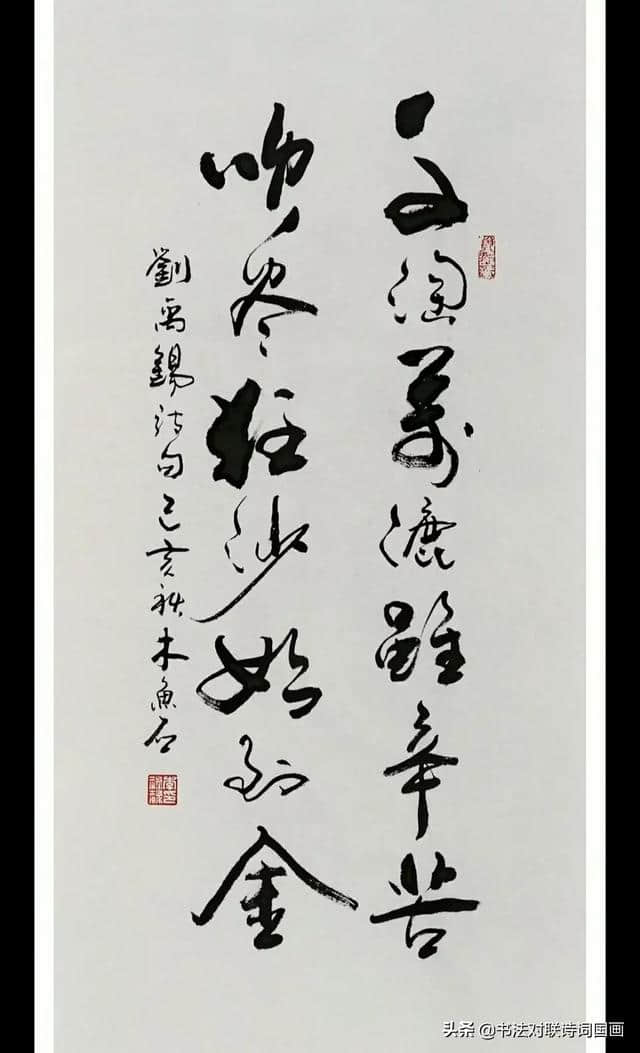 千淘萬漉雖辛苦
吹尽狂沙始到金
劉禹錫詩句己亥秋木魚石
头条 @书法对联诗词国画